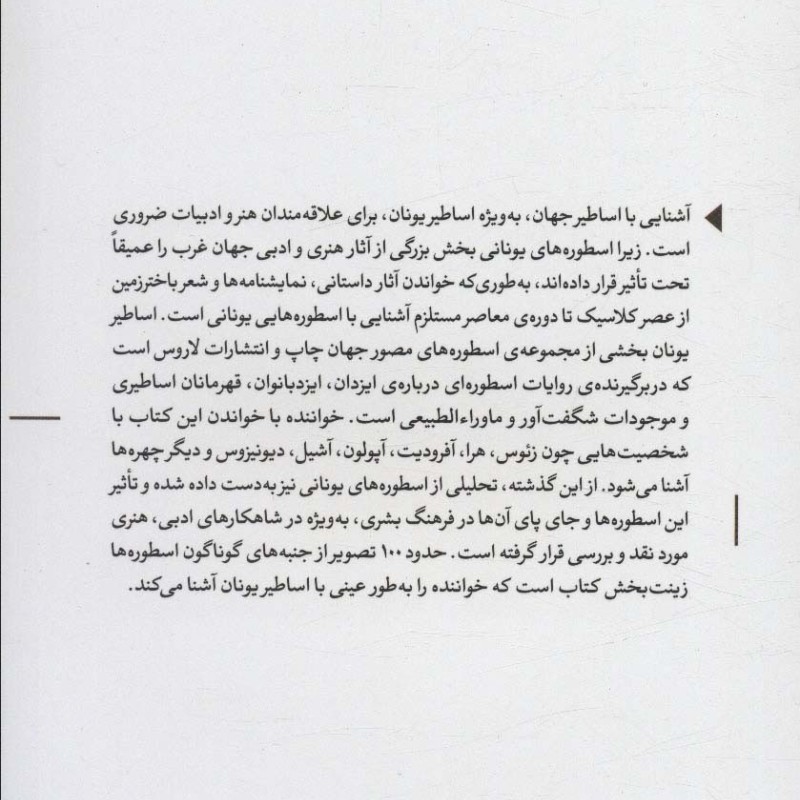 آشنایی با اساطیر جهان، به‌ویژه اساطیر یونان، برای علاقه‌مندان هنر و ادبیات ضروری
است. زیرا اسطوره‌های یونانی بخش بزرگی از آثار هنری و ادبی جهان غرب را عمیقاً
تحت تأثیر قرار داده‌اند، به‌طوری‌که خواندن آثار داستانی، نمایشنامه‌ها و شعر باخترزمین
از عصر کلاسیک تا دوره‌ی معاصر مستلزم آشنایی با اسطوره‌هایی یونانی است. اساطیر
یونان بخشی از مجموعه‌ی اسطوره‌های مصور جهان چاپ و انتشارات لاروس است
که دربرگیرنده‌ی روایات اسطوره‌ای درباره‌ی ایزدان، ایزدبانوان، قهرمانان اساطیری
و موجودات شگفت‌آور و ماوراءالطبیعی است. خواننده با خواندن این کتاب با
شخصیت‌هایی چون زئوس، هرا، آفرودیت، آپولون، آشیل، دیونیزوس و دیگر چهره‌ها
آشنا می‌شود. از این گذشته، تحلیلی از اسطوره‌های یونانی نیز به‌دست داده شده و تأثیر
این اسطوره‌ها و جای پای آن‌ها در فرهنگ بشری، به‌ویژه در شاهکارهای ادبی، هنری
مورد نقد و بررسی قرار گرفته است. حدود ۱۰۰ تصویر از جنبه‌های گوناگون اسطوره‌ها
زینت‌بخش کتاب است که خواننده را به‌طور عینی با اساطیر یونان آشنا می‌کند.